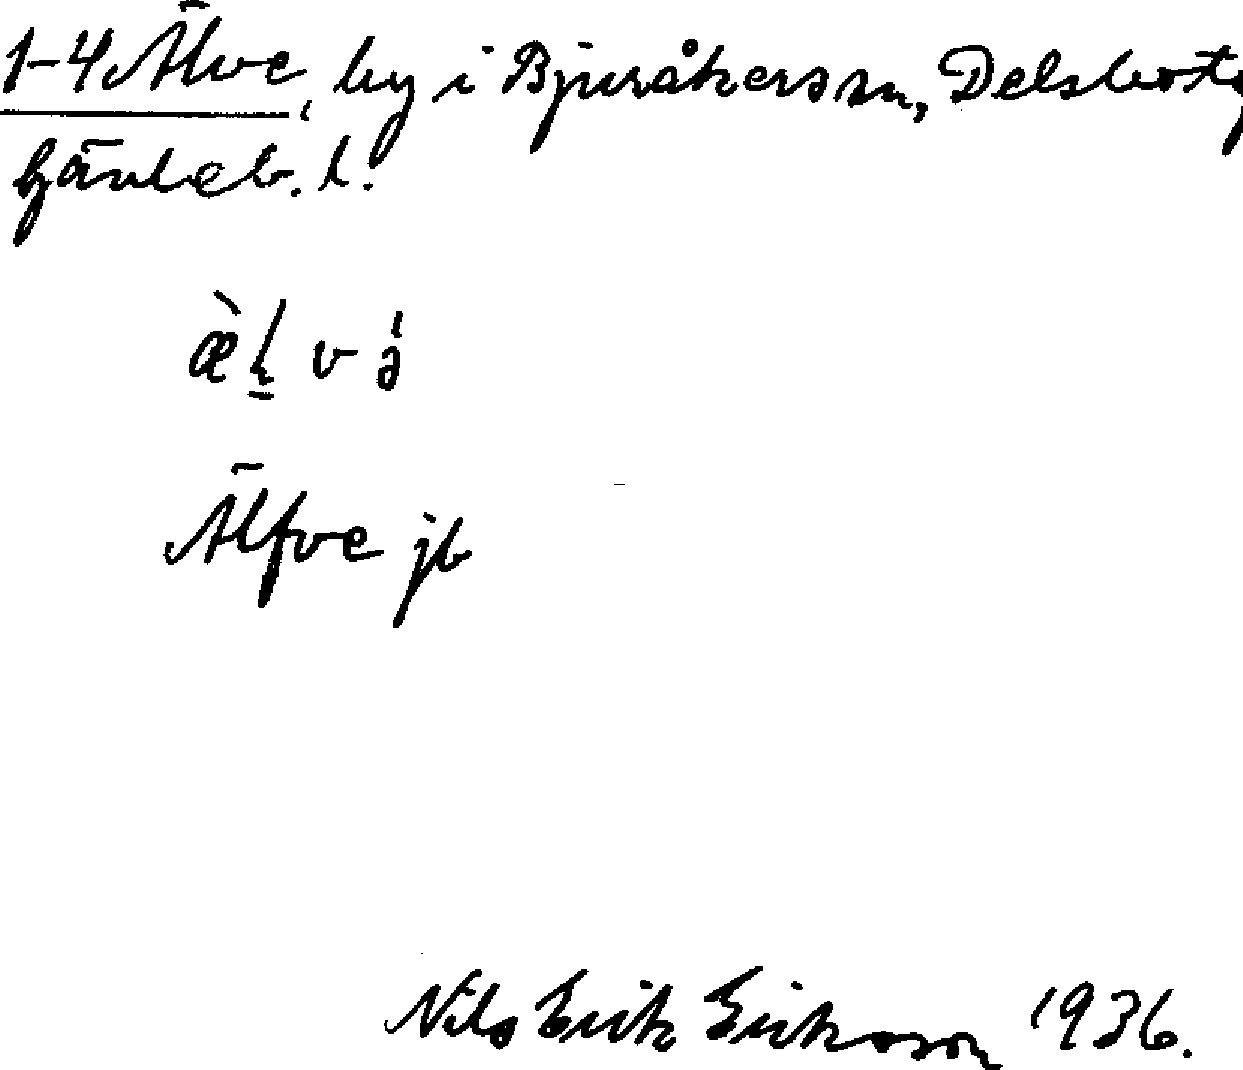 1-4 Älve, by i Bjuråkers sn, Delsbo tg
Gävleb. l.
æ̀ḷvə́
Älfve jb
Nils Erik Eriksson 1936.